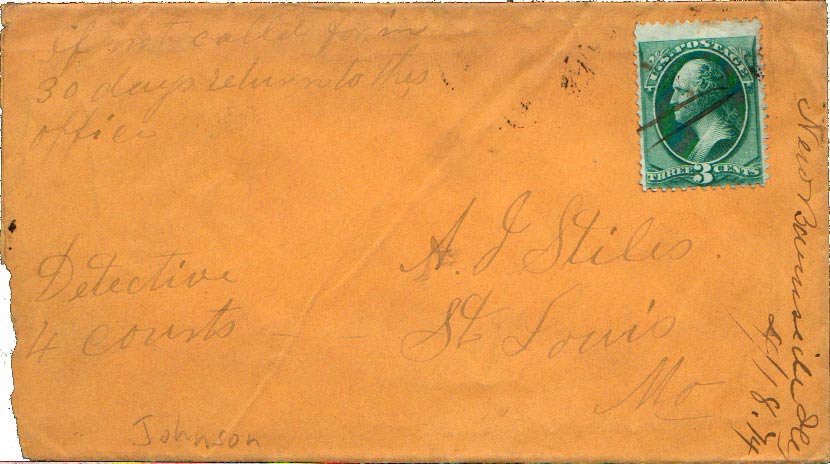 if not called for in
30 days return to this
office
U.S. POSTAGE
THREE 3 CENTS
A. J Stiles
St Louis
Mo
Detective
4 Courts
Johnson
New Burnside Ills
4/18.74